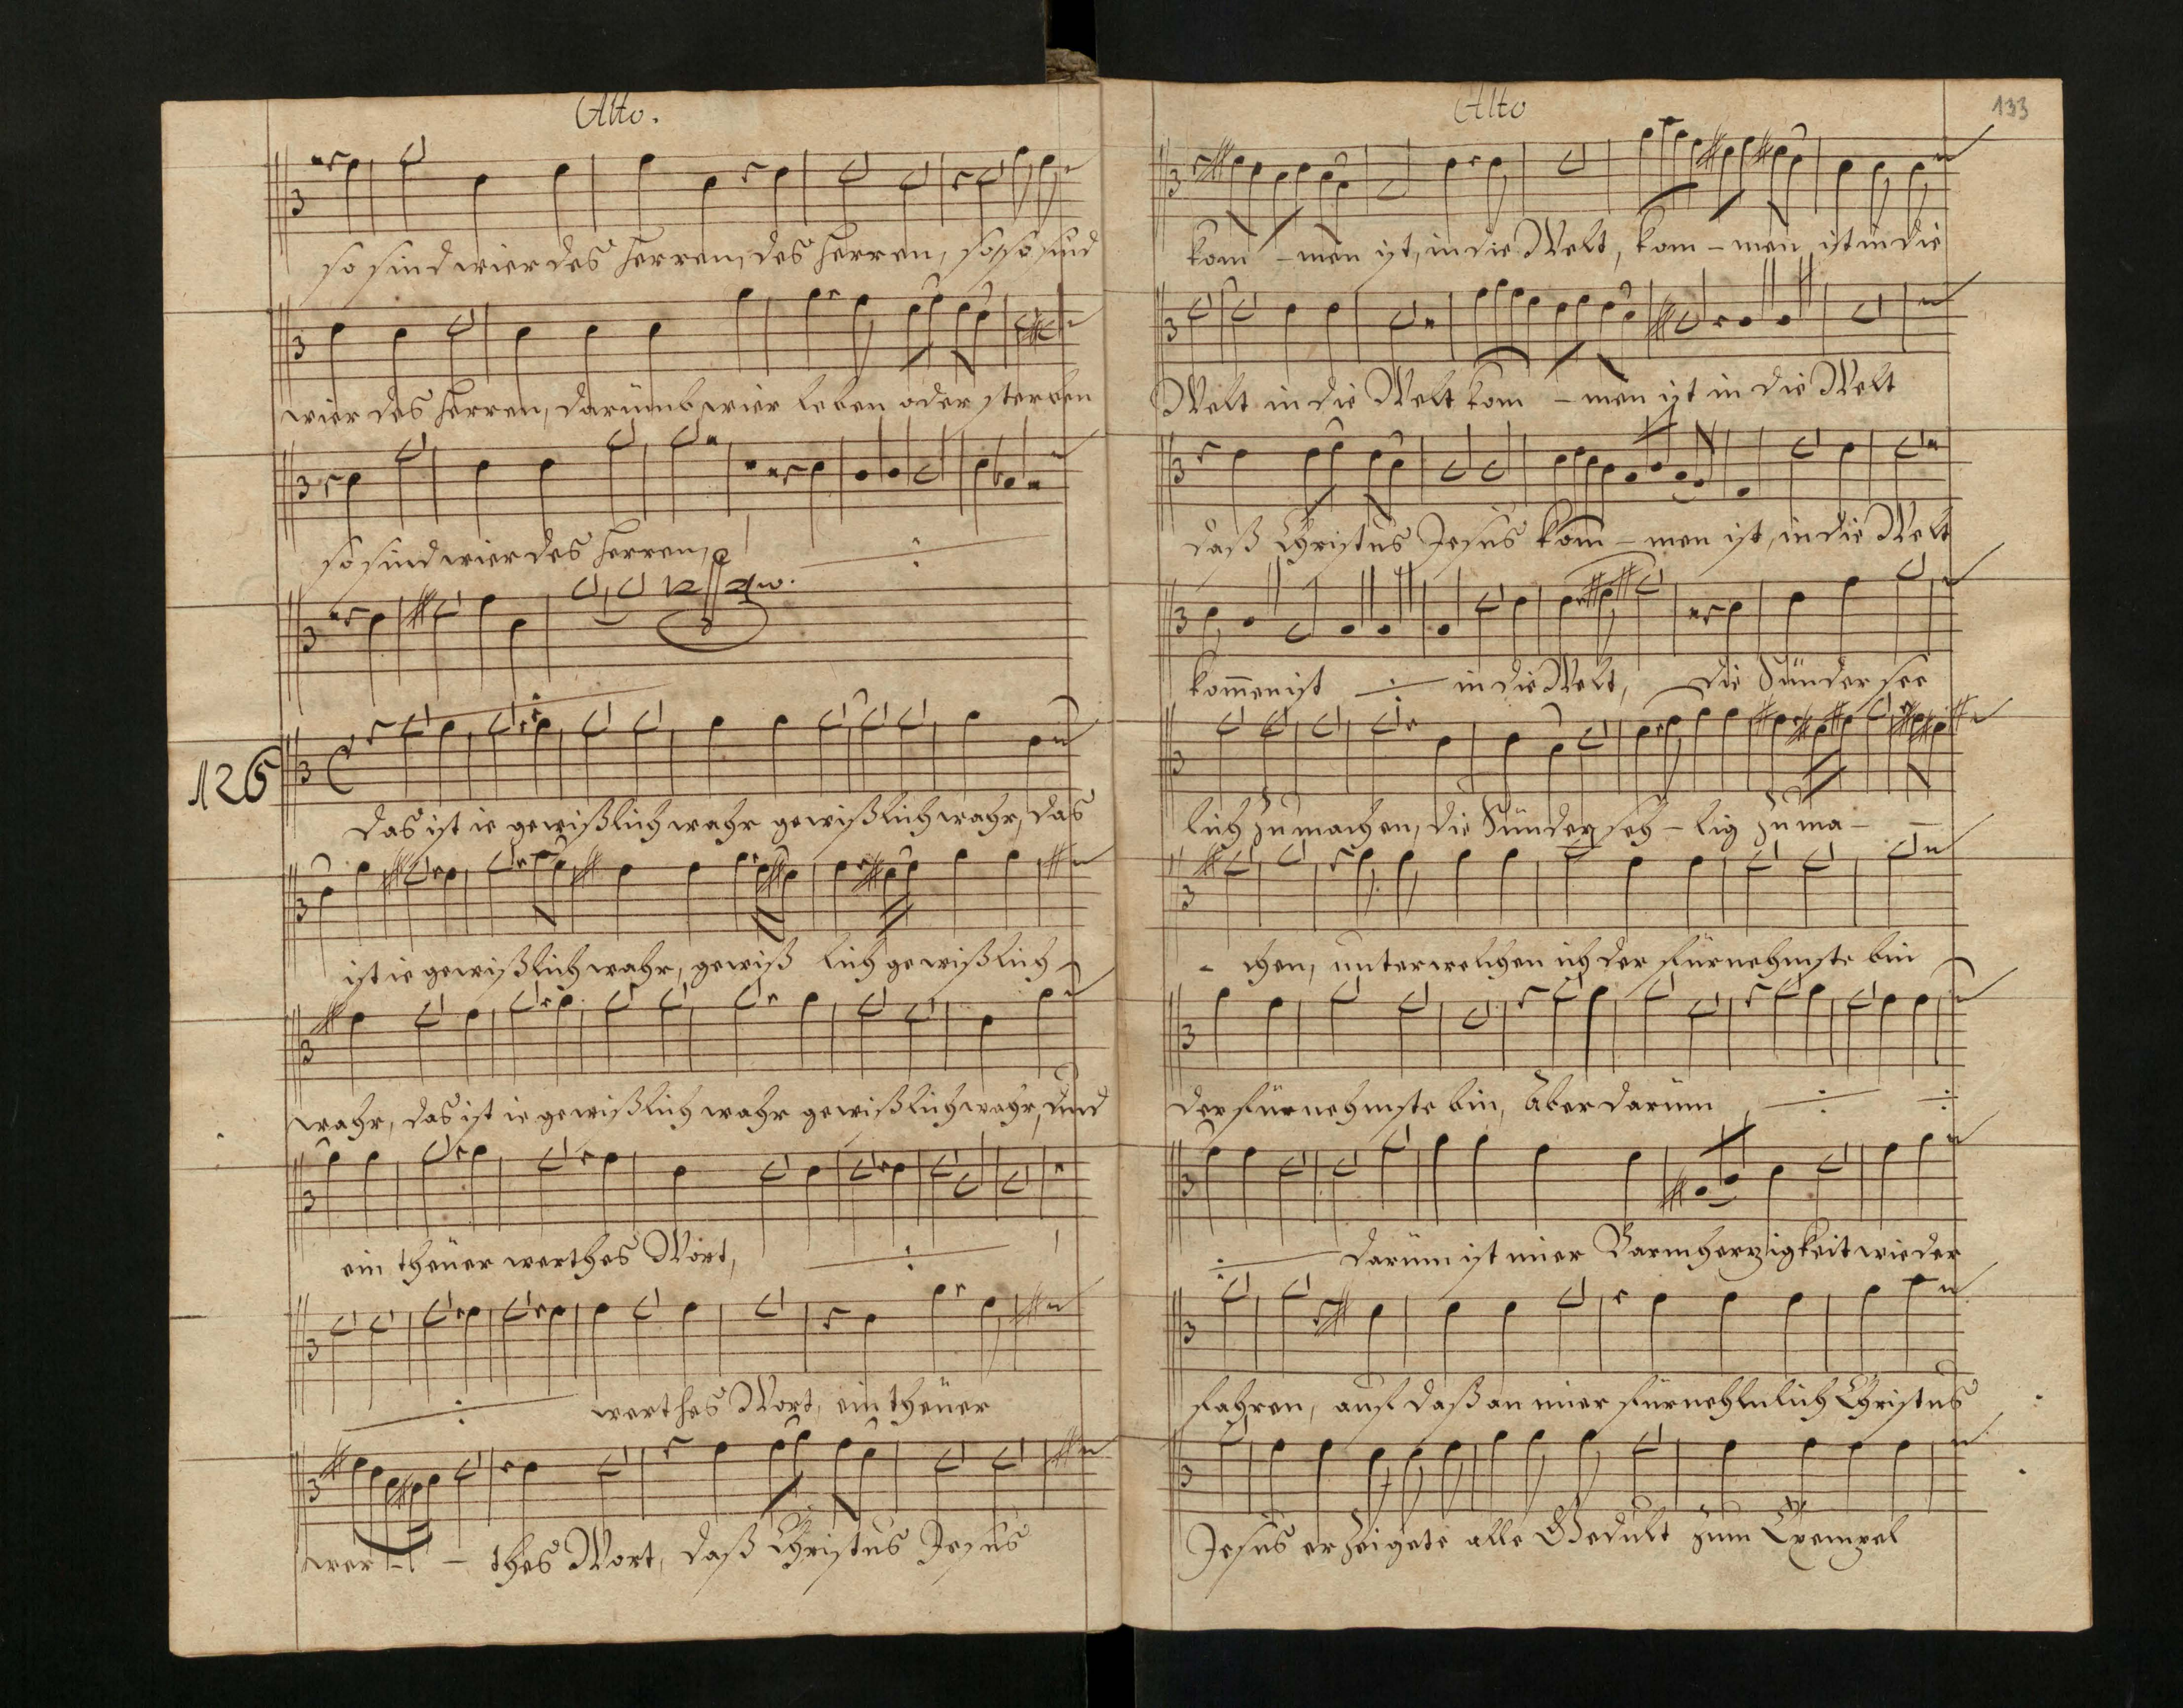 Alto.
so sind wier des Herren, des Herren, so so sind
wier des Herren, darümb wier leben oder sterben
so sind wier des Herren,
126
Das ist ie gewißlich wahr gewißlich wahr, das
ist ie gewißlich wahr, gewiß lich gewißlich
wahr, das ist ie gewißlich wahr gewißlich wahr, Und
ein theüer werthes Wort,
werthes Wort, ein theüer
wer - - thes Wort, daß Christus Jesus
Alto
133
kom - men ist, in die Welt, kom - men ist in die
Welt in die Welt kom - men ist in die Welt
daß Christus Jesus kom - men ist, in die Welt
kom̄en ist in die Welt, die Sünder see
lich zu machen, die Sünder seh - lig zu ma -
- chen, unter welchen ich der fürnehmste bin
der fürnehmste bin, Aber darüm
darüm ist mier Barmherzigkeit wieder
fahren, auf daß an mier fürnehmlich Christus
Jesus erzeigete alle Gedult zum Exempel